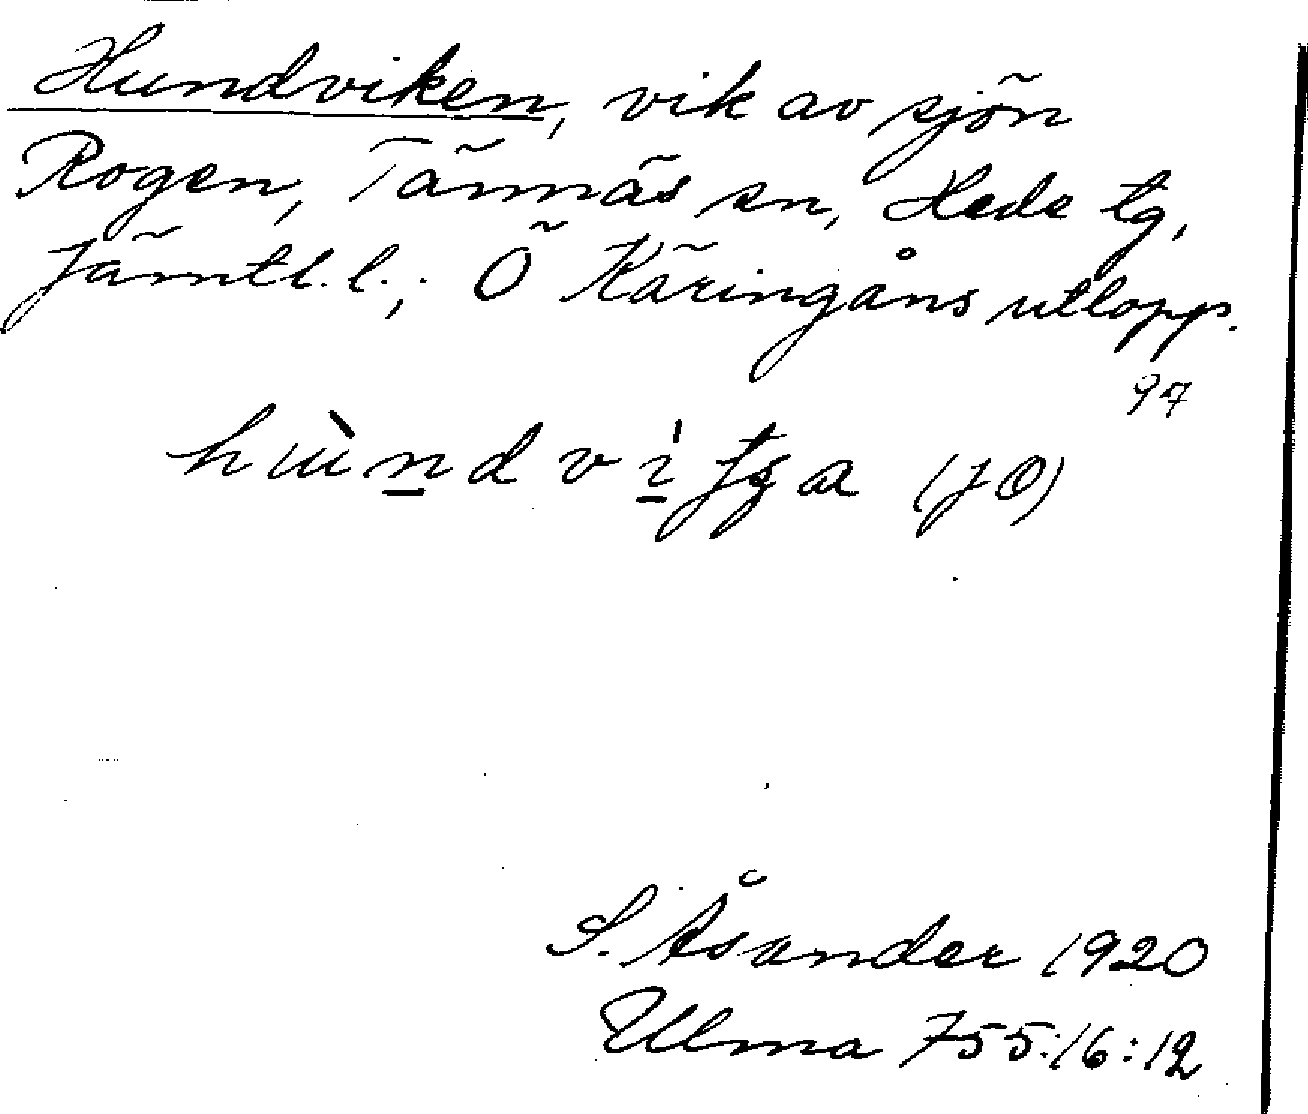 Hundviken, vik av sjön
Rogen, Tännäs sn, Hede tg,
Jämtl. l.; Ö Käringåns utlopp.
97
(JÖ)
S. Åsander 1920
Ulma 755:16:12